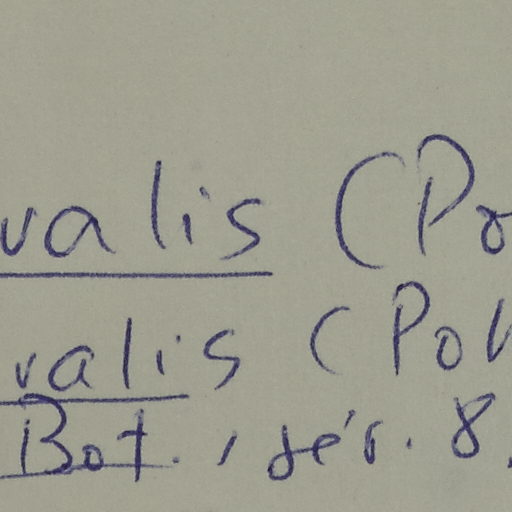 valis (Po
valis (Pol
Bot., sér. 8,